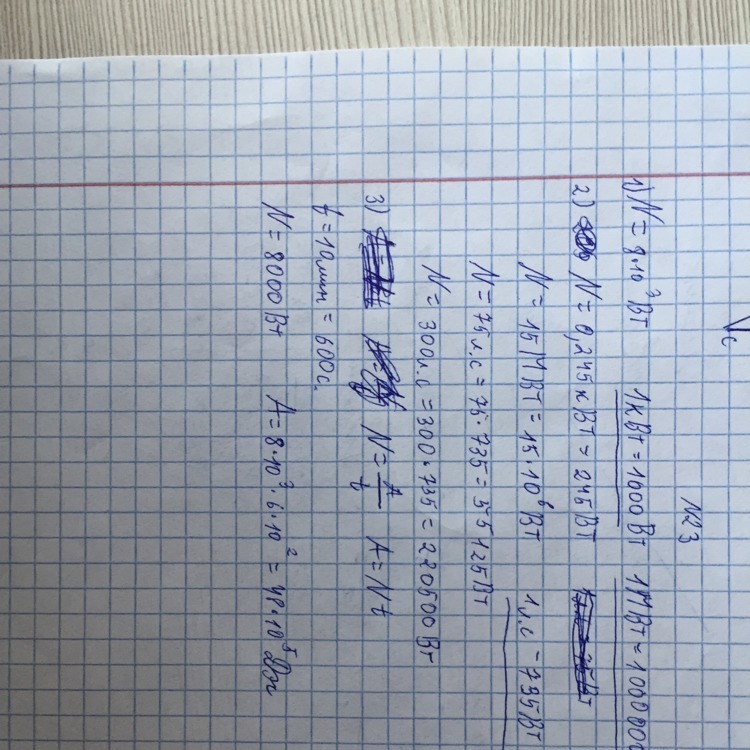 √c
№23
1) N = 8·10³ Вт 1кВт = 1000 Вт 1МВт = 1000000
2) N = 0,245кВт = 245Вт
N = 15 МВт = 15·10⁶ Вт 1л.с = 735Вт
N = 75 л.с = 75·735 = 55125Вт
N = 300л.с = 300·735 = 220500 Вт
3) N = A/t A = Nt
t = 10мин = 600с.
N = 8000 Вт A = 8·10³·6·10² = 48·10⁵ Дж